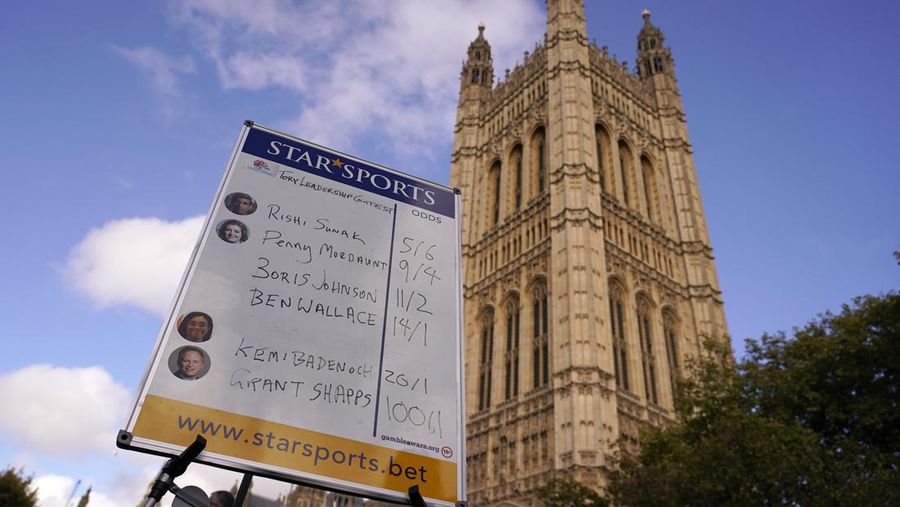 STAR SPORTS
TORY LEADERSHIP CONTEST ODDS
RISHI SUNAK 5/6
PENNY MORDAUNT 9/4
BORIS JOHNSON 11/2
BEN WALLACE 14/1
KEMI BADENOCH 20/1
GRANT SHAPPS 100/1
gambleaware.org 18+
www.starsports.bet